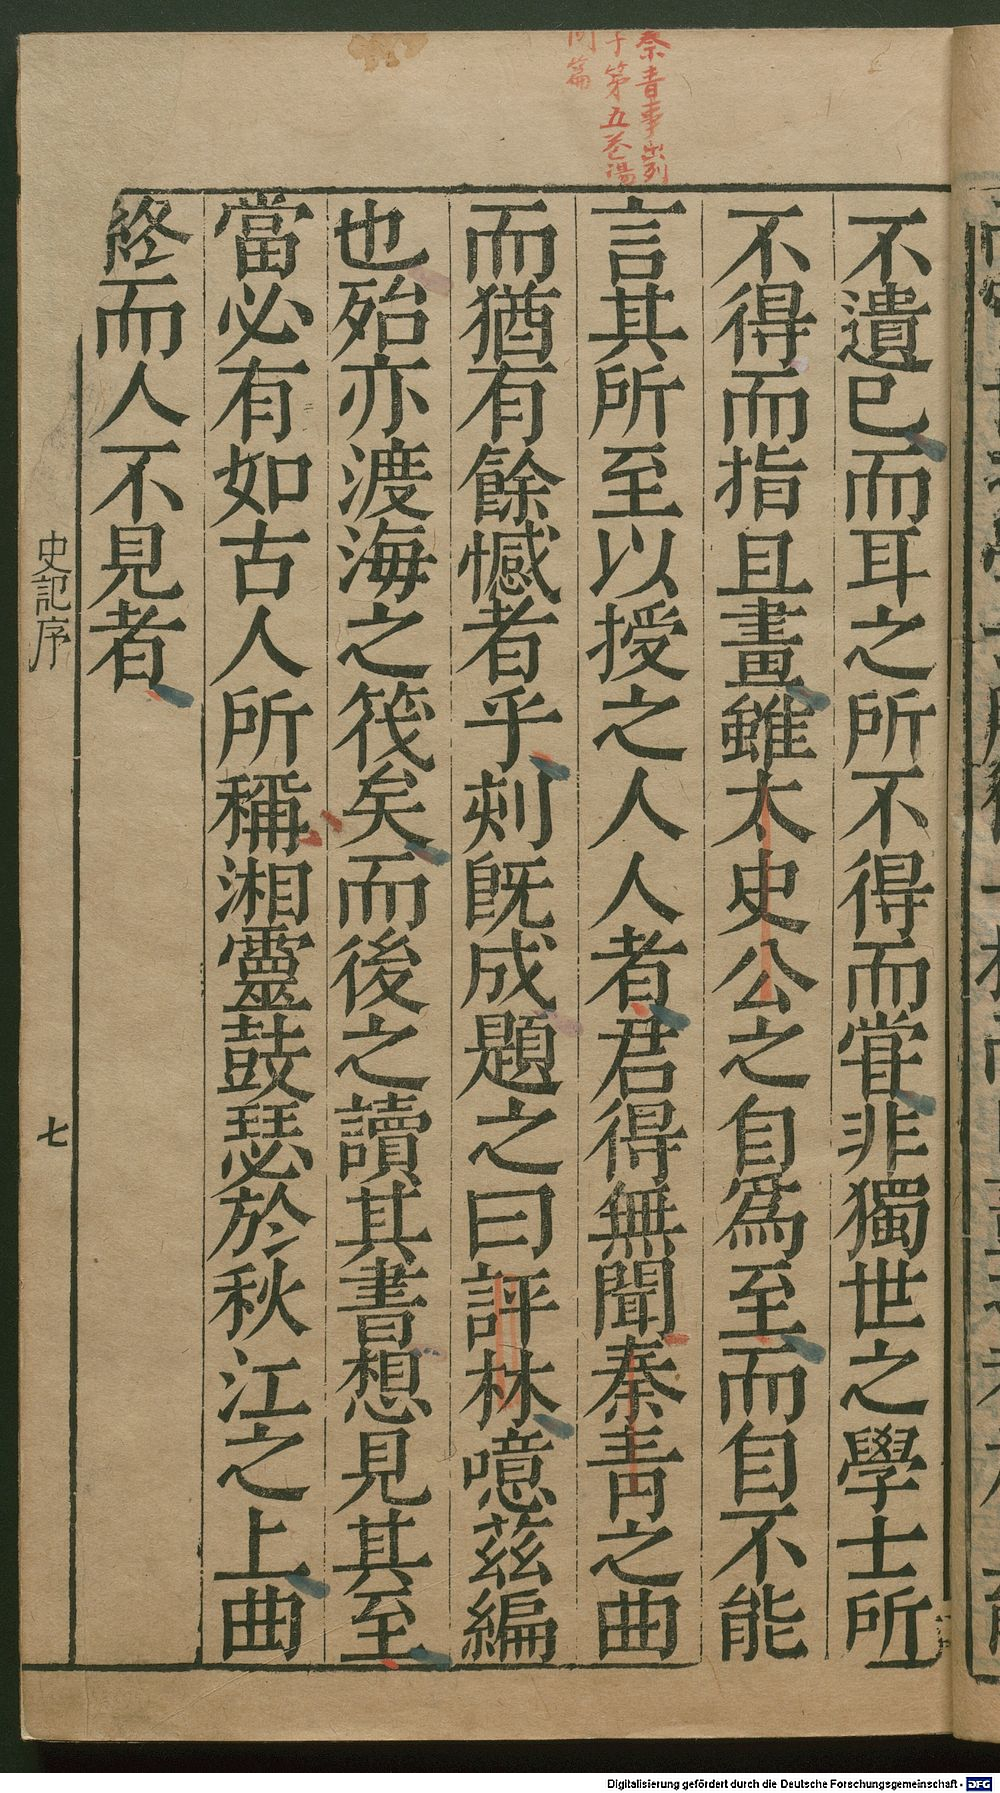 秦青事出列
子第五卷湯
問篇
不遺已而耳之所不得而甞非獨世之學士所
不得而指且畫雖太史公之自爲至而自不能
言其所至以授之人人者君得無聞秦青之曲
而猶有餘憾者乎刻既成題之曰評林噫茲編
也殆亦渡海之筏矣而後之讀其書想見其至
當必有如古人所稱湘靈鼓瑟於秋江之上曲
終而人不見者
史記序
七
Digitalisierung gefördert durch die Deutsche Forschungsgemeinschaft - DFG